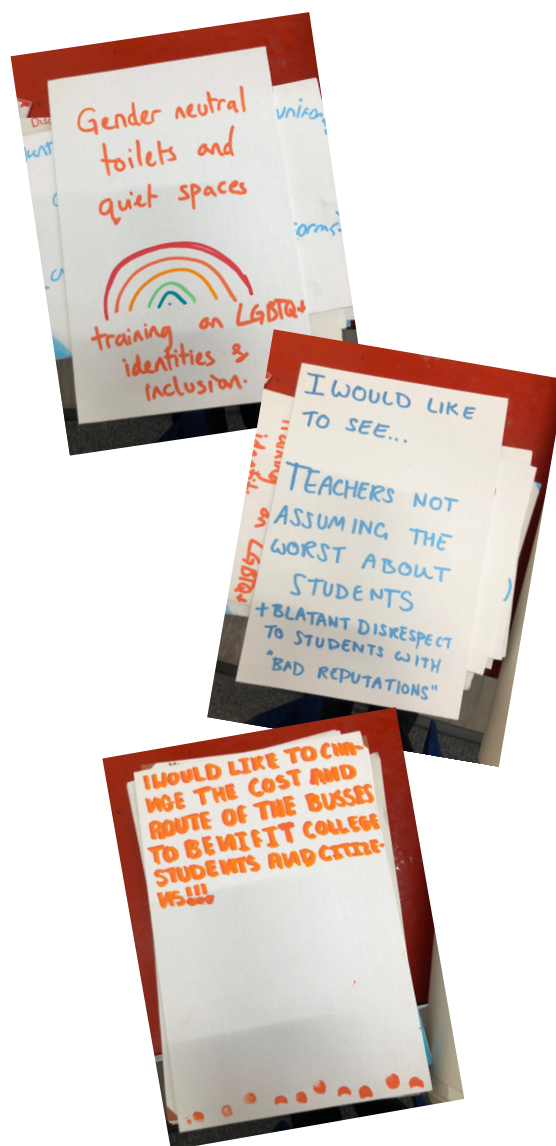 Gender neutral
toilets and
quiet spaces
training on LGBTQ+
identities &
inclusion.
I WOULD LIKE
TO SEE...
TEACHERS NOT
ASSUMING THE
WORST ABOUT
STUDENTS
+ BLATANT DISRESPECT
TO STUDENTS WITH
"BAD REPUTATIONS"
I WOULD LIKE TO CHA-
NGE THE COST AND
ROUTE OF THE BUSSES
TO BENIFIT COLLEGE
STUDENTS AND CITIZE-
NS!!!